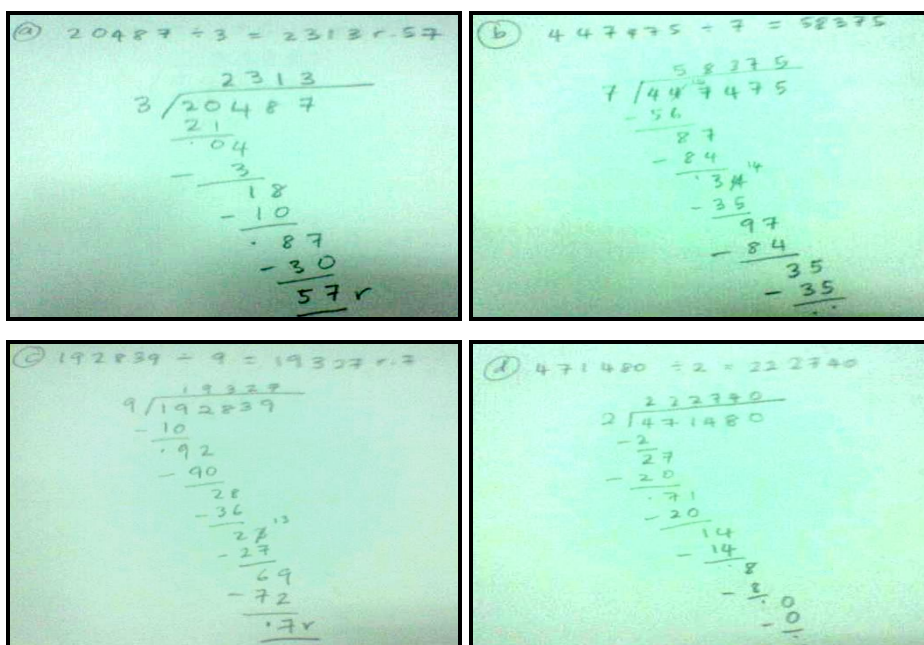 a 20487 ÷ 3 = 2313 r. 57
2313
3 20487
21
04
- 3
18
- 10
87
- 30
57 r
b 447475 ÷ 7 = 58375
58375
7 447475
- 56
87
- 84
34 14
- 35
97
- 84
35
- 35
c 192839 ÷ 9 = 19327 r. 7
19327
9 192839
- 10
92
- 90
28
- 36
13
- 27
69
- 72
7 r
d 471480 ÷ 2 = 222740
222740
2 471480
- 2
27
- 20
71
- 20
14
- 14
8
- 8
0
- 0